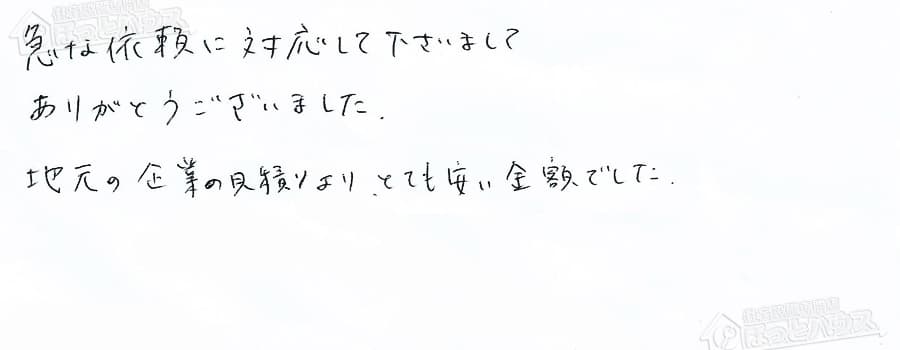 急な依頼に対応して下さいまして
ありがとうございました.
地元の企業の見積りより、とても安い金額でした.
ほっとハウス
ほっとハウス